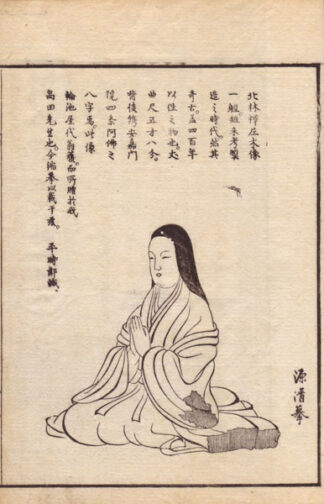 北林禅尼木像
一軀雖未考製
造之時代然其
奇古蓋四百年
以往之物也丈
曲尺五寸八分
背後携安嘉門
院四条阿佛之
八字焉此像
輪池屋代翁獲而所贈於我
高田先生也今縮摹以載于後 平時鄰識
源清摹